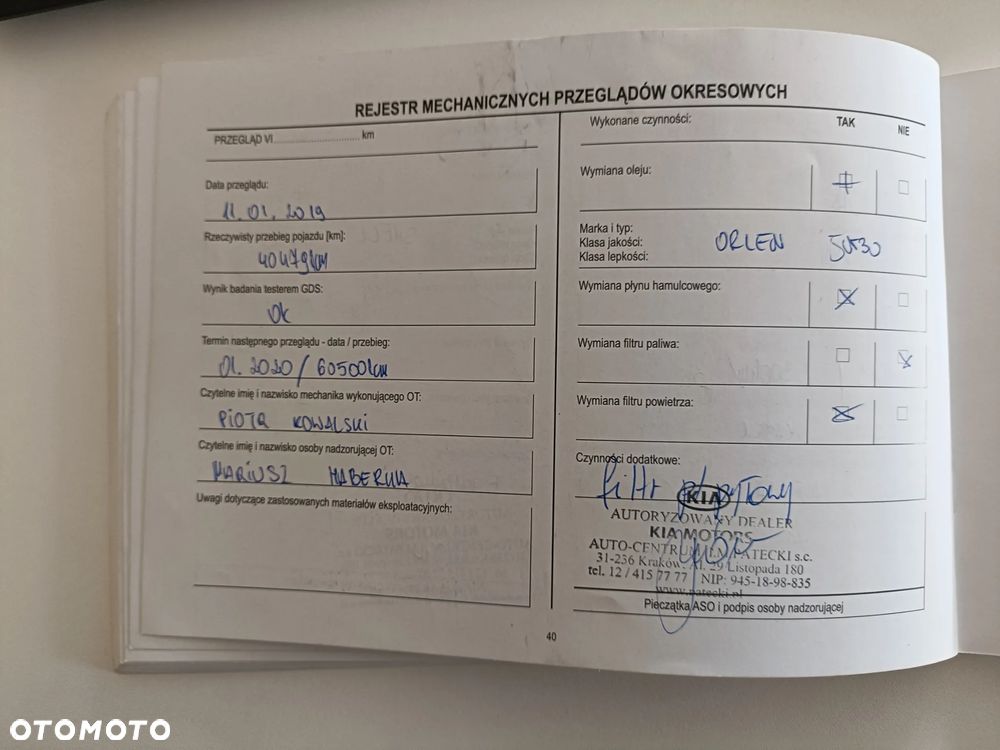 REJESTR MECHANICZNYCH PRZEGLĄDÓW OKRESOWYCH
PRZEGLĄD VI............................ km
Data przeglądu:
11.01.2019
Rzeczywisty przebieg pojazdu [km]:
40479km
Wynik badania testerem GDS:
Ok
Termin następnego przeglądu - data / przebieg:
01.2020/60500km
Czytelne imię i nazwisko mechanika wykonującego OT:
PIOTR KOWALSKI
Czytelne imię i nazwisko osoby nadzorującej OT:
MARIUSZ
Uwagi dotyczące zastosowanych materiałów eksploatacyjnych:
Wykonane czynności: TAK NIE
Wymiana oleju:
Marka i typ:
Klasa jakości: ORLEN 5W30
Klasa lepkości:
Wymiana płynu hamulcowego:
Wymiana filtru paliwa:
Wymiana filtru powietrza:
Czynności dodatkowe:
filtr pyłkowy
KIA
AUTORYZOWANY DEALER
KIA MOTORS
AUTO-CENTRUM PATECKI s.c.
31-236 Kraków, Al. 29 Listopada 180
tel. 12 / 415 77 77 NIP: 945-18-98-835
www.patecki.pl
Pieczątka ASO i podpis osoby nadzorującej
40
OTOMOTO